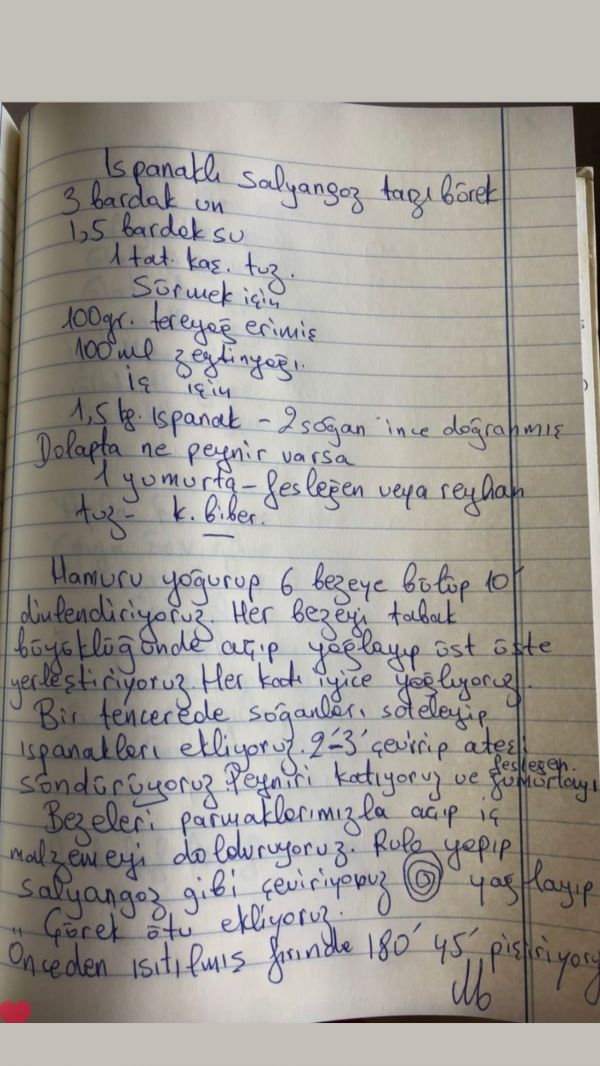 Ispanaklı salyangoz tarzı börek
3 bardak un
1,5 bardak su
1 tat. kaş. tuz.
Sürmek için
100gr. tereyağ erimiş
100 ml zeytinyağı.
İç için
1,5 kg. Ispanak - 2 soğan ince doğranmış
Dolapta ne peynir varsa
1 yumurta - fesleğen veya reyhan
tuz - k. biber.
Hamuru yoğurup 6 bezeye bölüp 10'
dinlendiriyoruz. Her bezeyi tabak
büyüklüğünde açıp yağlayıp üst üste
yerleştiriyoruz. Her katı iyice yağlıyoruz.
Bir tencerede soğanları soteleyip
ıspanakları ekliyoruz. 2'-3' çevirip ateşi
söndürüyoruz Peyniri katıyoruz ve fesleğen. yumurtayı
Bezeleri parmaklarımızla açıp iç
malzemeyi dolduruyoruz. Rulo yapıp
salyangoz gibi çeviriyoruz yağlayıp
Çörek otu ekliyoruz.
Önceden ısıtılmış fırında 180' 45' pişiriyoruz